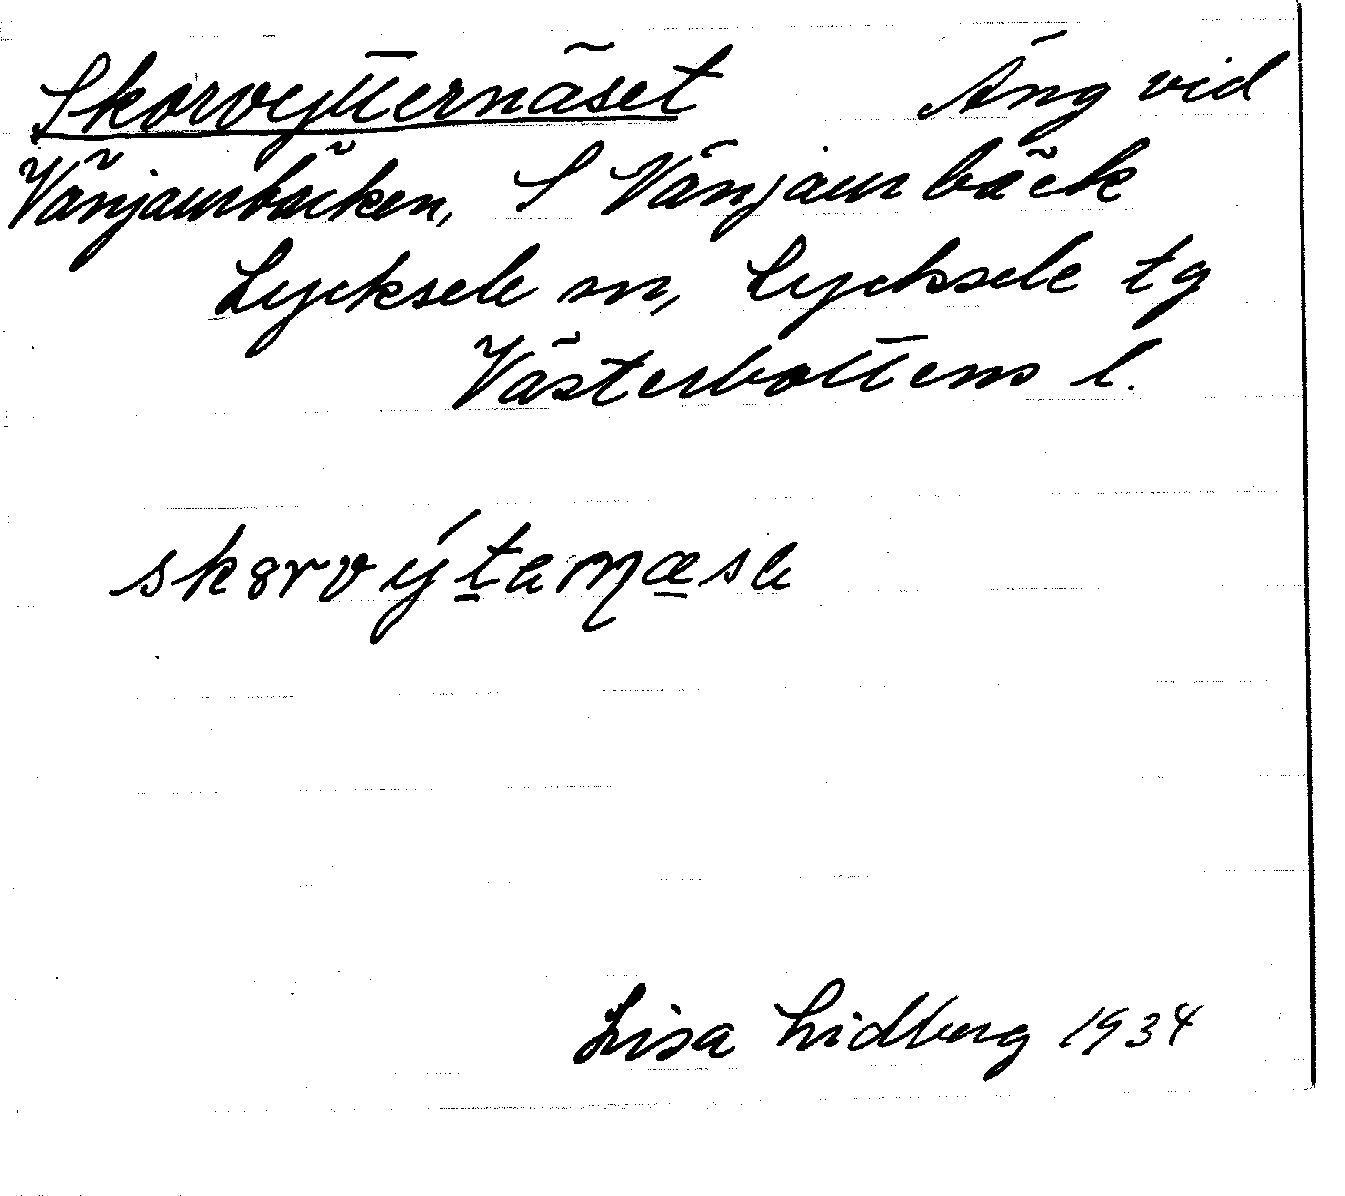 Skorvytternäset Äng vid
Vänjaurbäcken, S Vänjaurbäck
Lycksele sn, Lycksele tg
Västerbottens l.
skørvýt̲ernæ̲se
Lisa Lidberg 1934